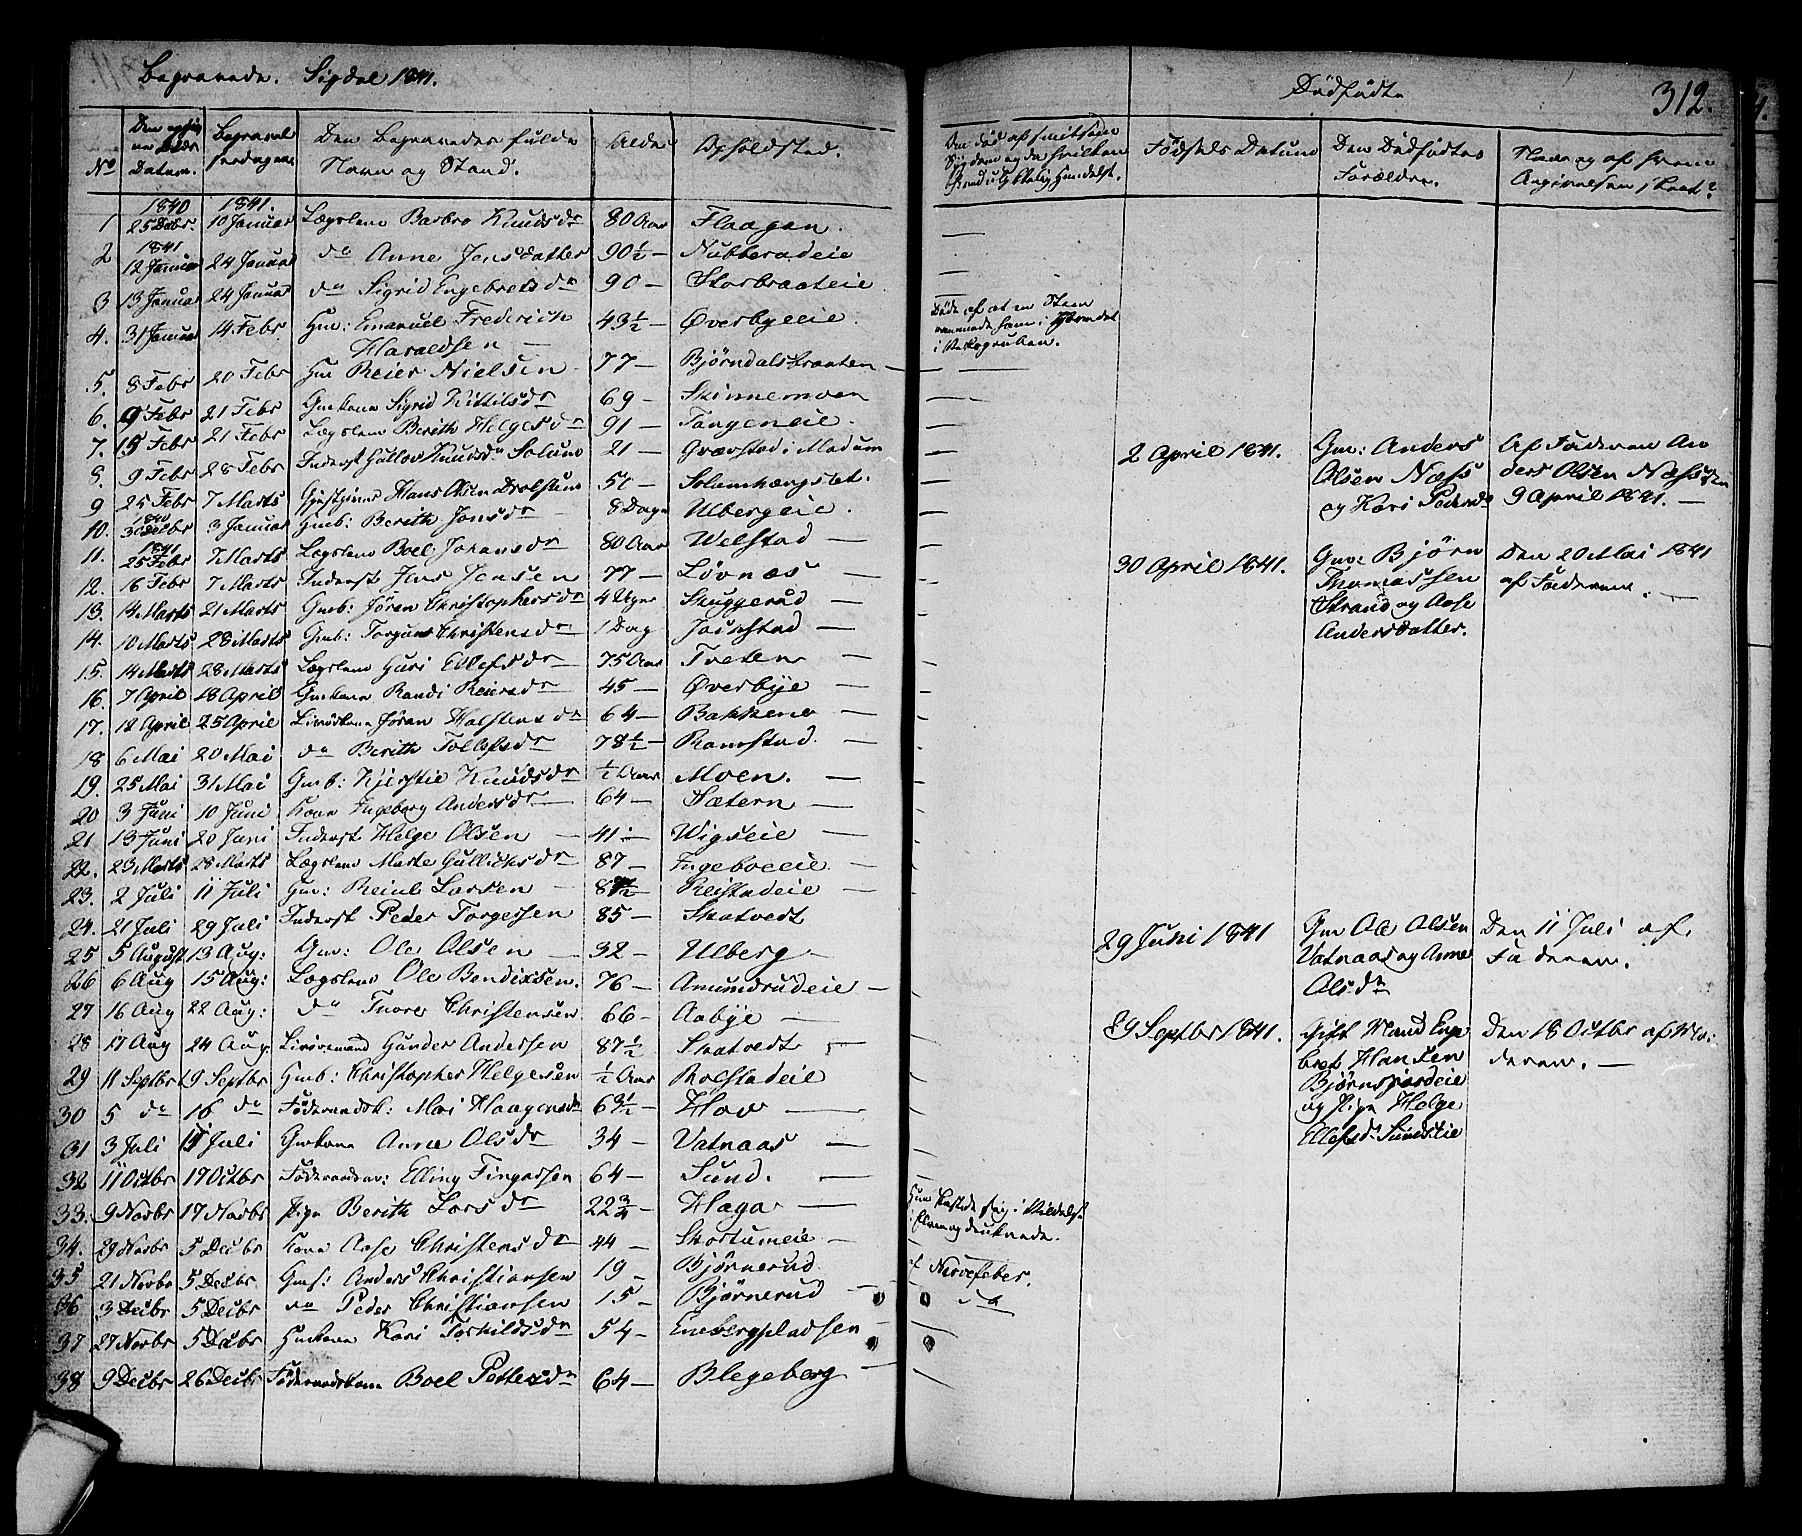 Begravede. Sigdal 1841.
No
Datum.
Begravel
sesdagen
Den Begravedes fulde
Navn og Stand.
Alder
Opholdsted.
1 1840 25 Decbr. 1841. 10 Januar Lægslem Barbro Knudsdr 80 Aar Flaagan.
2 1841 12 Januar 24 Januar do Anne Jensdatter 90½ — Nubberudeie
3 13 Januar 24 Januar do Sigrid Engebretsdr 90 — Storbraateie
4. 31 Januar 14 Febr. Gm: Emanuel Frederich 43½ — Øverbyeeie
Haraldsen —
5. 8 Febr 20 Febr Gm Reier Nielsen 77 — Bjørndalsbraaten —
6. 9 Febr 21 Febr Gmkone Sigrid Kittilsdr 69 — Skinnemoen
7. 15 Febr 21 Febr Lægslem Berith Helgesdr 91 — Tangeneie
8. 9 Febr 28 Febr Inderst Gullov Knudsdr Solum 21 — Gravstad i Modum
9 25 Febr 7 Marts Hans Olsen 50 — Solumhængslet.
10. 1840 30 Decbr 3 Januar Gmb: Berith Jonsdr 8 Dage Ulbergeie
11. 1841 25 Febr 7 Marts Lægslem Boel Johansdr 80 Aar Welstad —
12. 16 Febr 7 Marts Inderst Jens Jensen 77 — Løvnæs —
13. 14 Marts 21 Marts Gmb: Jøren Christophersdr 4 Uger Skuggerud —
14. 10 Marts 28 Marts Gmb: Torgun Christensdr 1 Dag —
15. 14 Marts 28 Marts Lægslem Guri Ellefsdr 75 Aar Tveten —
16. 7 April 18 April Gmkone Randi Reiersdr 45 — Øverbye —
17. 18 April 25 April Jøran Halstensdr 64 — Bakkene —
18 6 Mai 20 Mai do Berith Tollefsdr 78½ — Ramstad. —
19. 25 Mai 31 Mai Gmb: Kjerstie Knudsdr ½ Aar Moen. —
20 3 Juni 10 Juni Kone Ingeborg Andersdr — 64 — Sætern —
21 13 Juni 20 Juni Inderst Helge Olsen — 41 — Wigseie —
22. 23 Marts 28 Marts Lægslem Marte Gullichsdr 87 — Ingeboeeie
23. 2 Juli 11 Juli Gm: Reinl Larsen — Reistadeie —
24. 21 Juli 29 Juli Inderst Peder Torgersen 85 — Skatvedt
25 5 August 13 Aug: Gm: Ole Olsen — 32 — Ulberg —
26 6 Aug 15 Aug: Lægslem Ole Bendixsen. 76 — Amundrudeie —
27 16 Aug 22 Aug: do Tuore Christensen 66 — Aabye —
28 17 Aug 24 Aug. Gunder Andersen 87½ — Skatvedt —
29 11 Septbr 19 Septbr Gmb: Christopher Helgesen ½ Aar Rolstadeie
30 5 do 16 do Føderaadsk: Mari Haagensdr 63½ — Hov —
31 3 Juli 11 Juli Gmkone Anne Olsdr 34 — Vatnaas —
32 11 Octbr 17 Octbr Føderaadsm: Elling Fingarsen 64 — Sund. —
33. 9 Novbr 17 Novbr Pige Berith Larsdr 22¾ — Haga —
34. 29 Novbr 5 Decbr Kone Aase Christensdr 44 — Skartumeie —
35 21 Novbr 5 Decbr Gms: Anders Christiansen 19 — Bjørnerud
36 3 Decbr 5 Decbr do Peder Christiansen 15 — Bjørnerud —
37 27 Novbr 5 Decbr Gmkone Kari Torkildsdr 54 — Enebergpladsen —
38 9 Decbr 26 Decbr Føderaadskone Boel Pettersdr 64 — Blegeberg —
Dødfødte
312.
Om død af smitsom
Sygdom og da hvilken
Fødsels Datum
Den Dødfødtes
Forældre.
Naar og af hvem
Angivelsen skeet?
Døde af at en Steen
rammede ham i Hovedet
2 April 1841.
Gm: Anders
Olsen Næss
og Kari Pedersdr
Af Faderen An
ders Olsen Næss den
9 April 1841. —
30 April 1841.
Gm: Bjørn
Thomassen
Strand og Aase
Andersdatter.
Den 20 Mai 1841
af Faderen. —
29 Juni 1841
Gm Ole Olsen
Vatnaas og Anne
Olsdr
Den 11 Juli af
Faderen.
29 Septbr 1841.
Gift Mand Enge
bret Hansen
Bjørnsgaardeie
og Pige Helge
Ellefsdr Sundseie
Den 18 Octbr af Mo:
deren. —
Hun kastede sig i
Elven og druknede.
af Nervefeber.
do